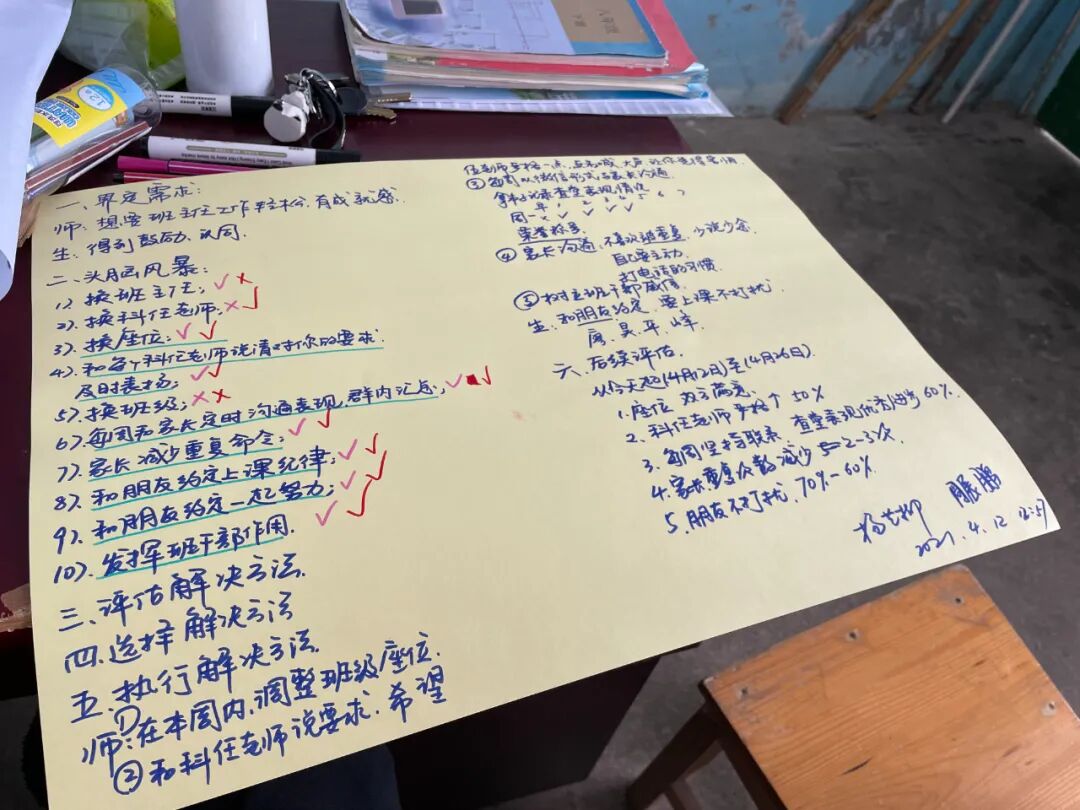 一、界定需求:
师:想要班主任工作轻松.有成就感
生:得到鼓励、认同.
二、头脑风暴:
1).换班主任;✓×
2).换科任老师;×✓
3).换座位;✓✓
4).和每个科任老师说清对你的要求.
及时表扬;✓✓
5).换班级;××
6).每周和家长定时沟通表现,群内汇总;✓✓
7).家长减少重复命令;✓✓
8).和朋友约定上课纪律;✓✓
9).和朋友约定一起努力;✓✓
10).发挥班干部作用.✓✓
三、评估解决方法.
四.选择解决方法
五.执行解决方法.
师:①在本周内,调整班级座位.
②和科任老师说要求.希望
任老师严格一点,
③每周以微信形式与家长沟通
拿来记录查堂表现情况
1 2 3 4 5 6 7
周一×✓✓✓✓
荣誉称号
④家长沟通,不喜欢被重复,少说少念
自己要主动.
打电话的习惯.
⑤树立班干部威信.
生:和朋友约定,要上课不打扰.
六、后续评估.
从今天起(4月12日)至(4月26日).
1.座位 双方满意.
2.科任老师严格↑50%
3.每周坚持联系.查堂表现优秀 60%
4.家长重复次数减少 5=2-3次.
5.朋友不打扰.70%-60%
2021.4.12